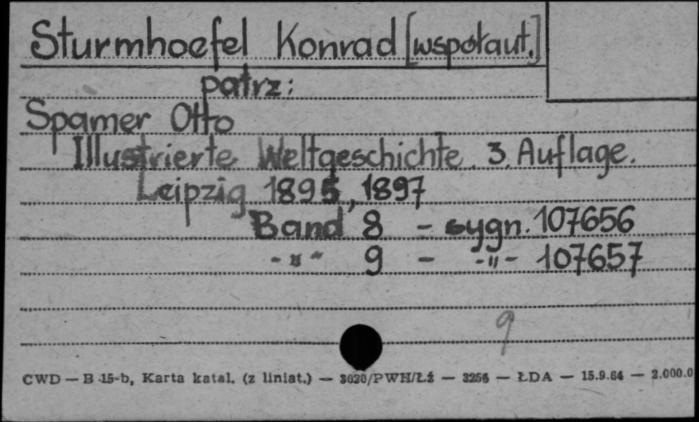 Sturmhoefel Konrad [współaut.]
patrz:
Spamer Otto
Illustrierte Weltgeschichte. 3. Auflage.
Leipzig 1895, 1897
Band 8 - sygn. 107656
-"- 9 - -"- 107657
9
CWD — B 15-b, Karta katal. (z liniat.) — 3020/PWH/Łż — 3256 — ŁDA — 15.9.64 — 2.000.0